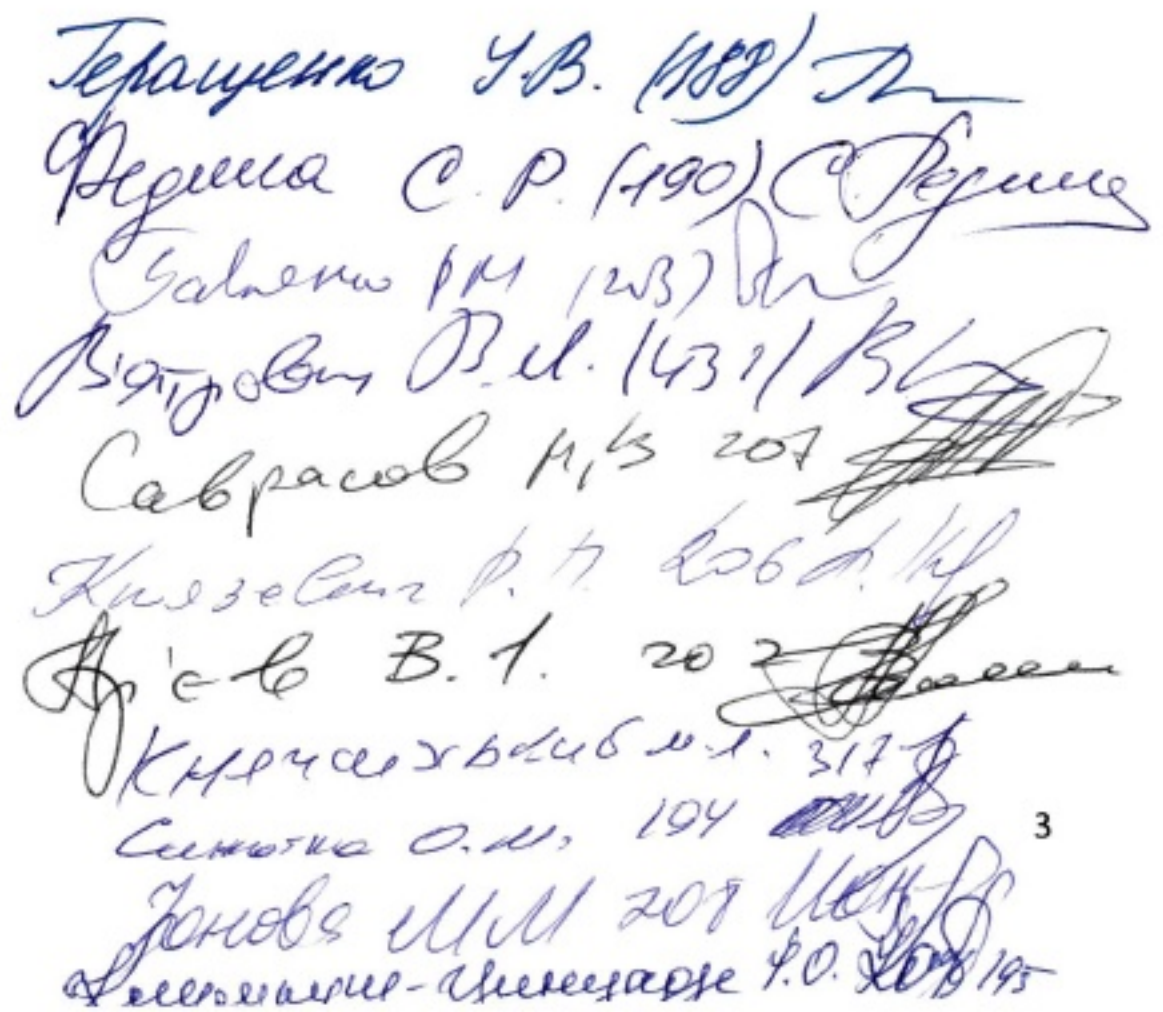 Геращенко І.В. (188)
Федина С.Р. (190) С. Федина
Павленко РМ (203)
В'ятрович В.М. (431)
Саврасов М,В 207
Княжевич Р.П. 206
Ар'єв В.І. 202
Княжицький М.Л. 317
Синютка О.М. 194
3
Іонова ММ 208
Климпуш-Цинцадзе І.О. 195